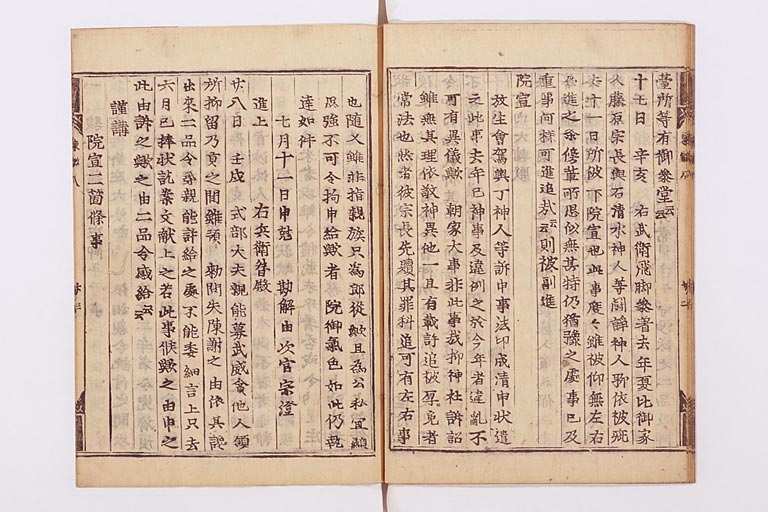 臺所等有御參堂云云
十七日 辛亥 右武衛飛脚參著去年夏比御家
人藤原宗長與石清水神人等鬪諍神人歎依被疵
去十一日所被下院宣也此事度々雖被仰無左右
召進之条傍輩所思似無甚恃仍猶豫之處事已及
重事何樣可進退哉云云則被副進
院宣
放生會駕輿丁神人等訴申事法印成清申狀遣
之此事去年已神事及違例之於今年者違亂不
可有異儀歟朝家大事非此事哉抑神社訴訟
雖無其理依敬神異他一旦有載許追被冤免者
常法也然者彼宗長先贖其罪科追可有左右事
也隨又雖非指親族只為郎從歟且為公私宜願
思強不可令拘申給歟者 院御氣色如此仍執
達如件
七月十一日申尅 勘解由次官宗澄
進上 右兵衛督殿
廿八日 壬戌 式部大夫親能募武威貪他人領
所抑留乃貢之間雖預 勅問失陳謝之由依其訴
出來二品令尋親能許給之處不能委細言上只去
六月已捧狀訖案文献上之若此事候歟之由申之
此由訴之歟之由二品令感給云云
謹講
院宣二箇條事